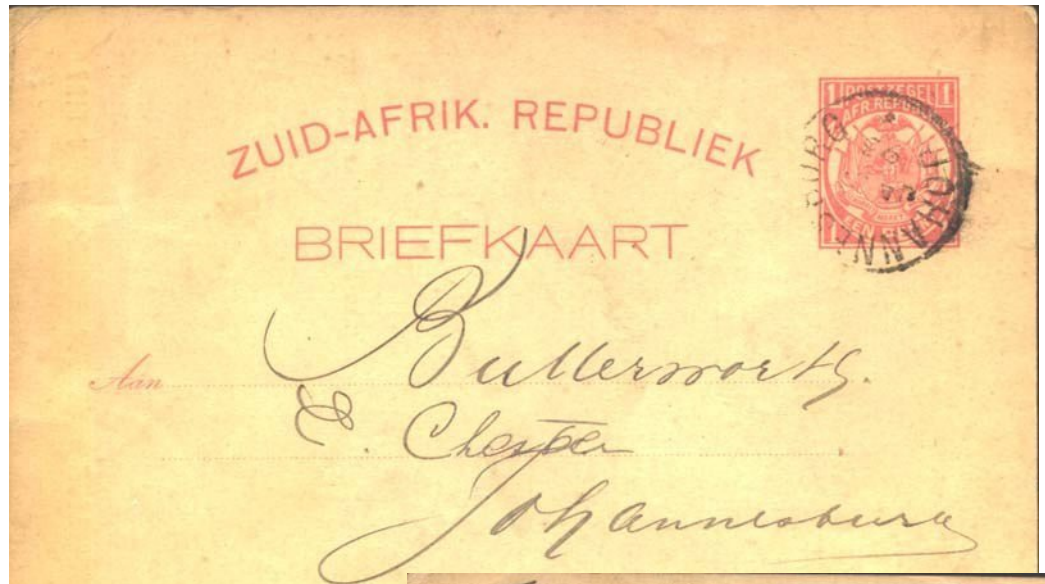 ZUID-AFRIK. REPUBLIEK
BRIEFKAART
1 POSTZEGEL 1
AFR. REPUB
JOHANNESBURG
EEN
Aan
Butterworth.
E. Chester
Johannesburg